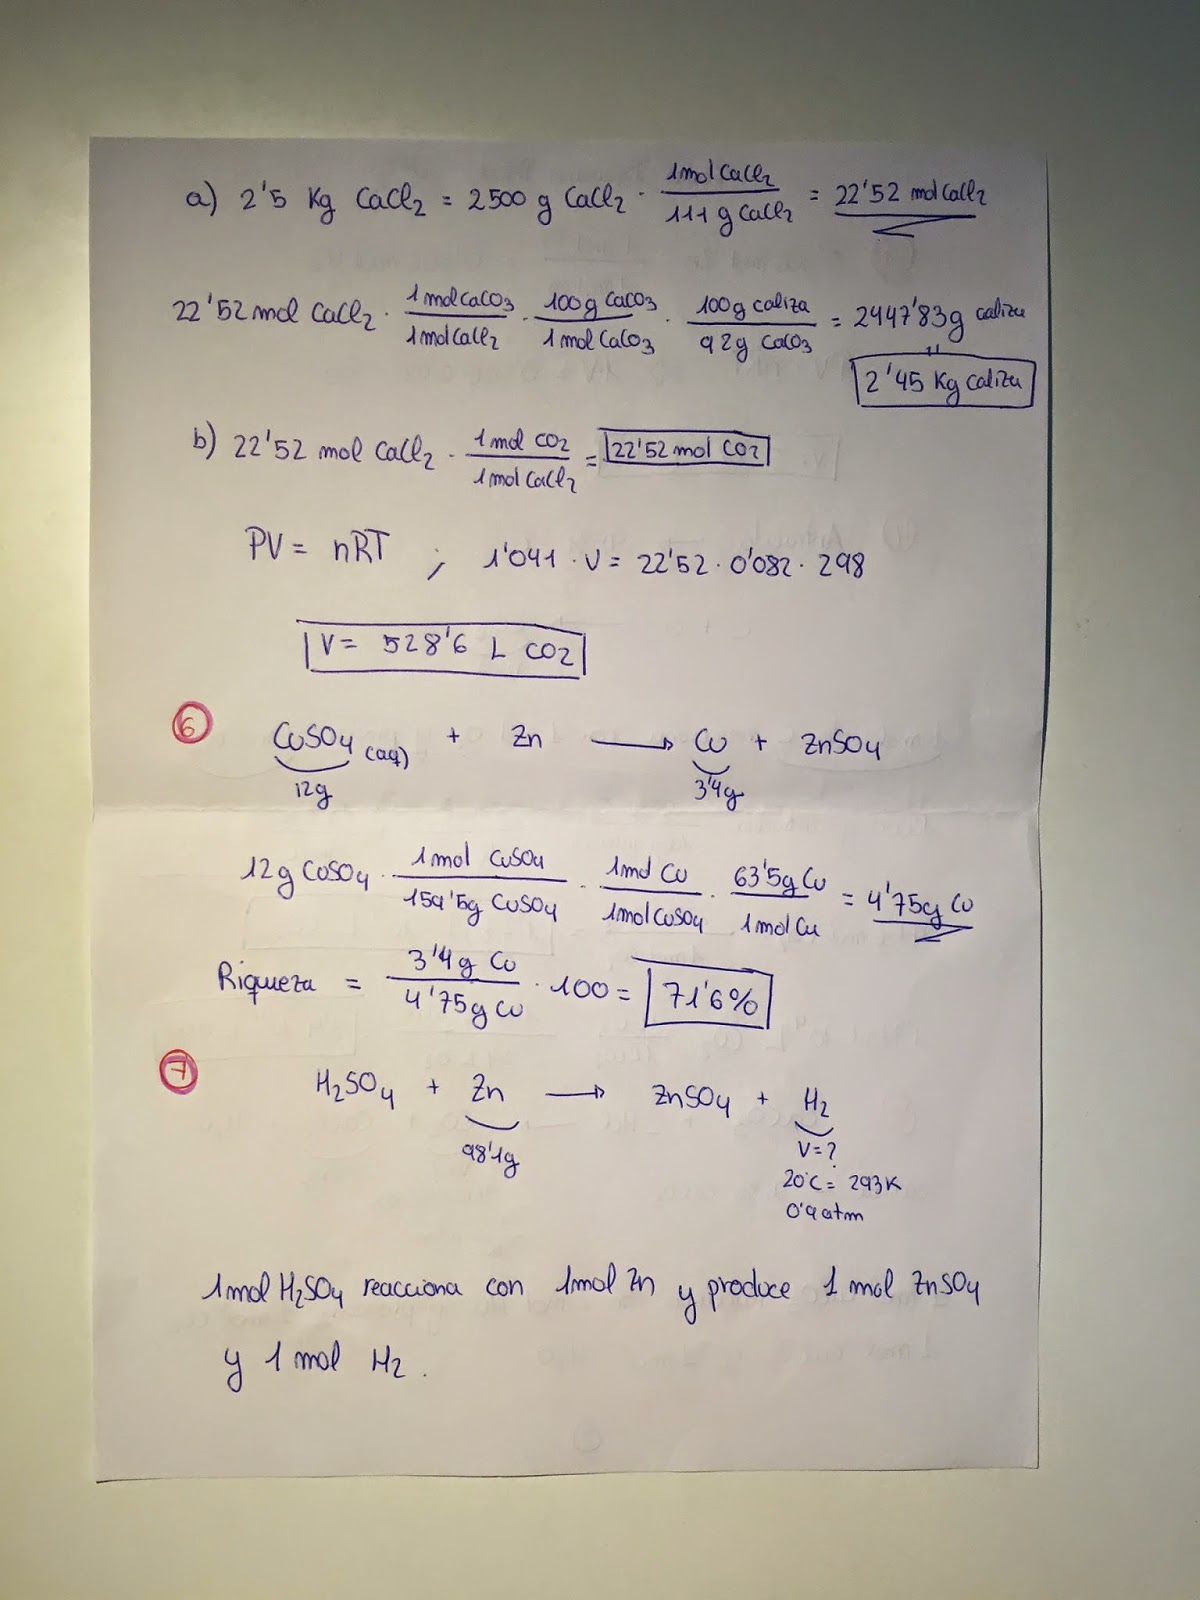 a) 2'5 Kg CaCl₂ = 2500 g CaCl₂ · 1 mol CaCl₂ / 111 g CaCl₂ = 22'52 mol CaCl₂
22'52 mol CaCl₂ · 1 mol CaCO₃ / 1 mol CaCl₂ · 100 g CaCO₃ / 1 mol CaCO₃ · 100 g caliza / 92 g CaCO₃ = 2447'83 g caliza
2'45 Kg caliza
b) 22'52 mol CaCl₂ · 1 mol CO₂ / 1 mol CaCl₂ = 22'52 mol CO₂
PV = nRT ; 1'041 · V = 22'52 · 0'082 · 298
V = 528'6 L CO₂
6 CuSO₄ (aq) + Zn → Cu + ZnSO₄
12g 3'4g
12 g CuSO₄ · 1 mol CuSO₄ / 159'5 g CuSO₄ · 1 mol Cu / 1 mol CuSO₄ · 63'5 g Cu / 1 mol Cu = 4'75 g Cu
Riqueza = 3'4 g Cu / 4'75 g Cu · 100 = 71'6%
7 H₂SO₄ + Zn → ZnSO₄ + H₂
98'1g V = ?
20°C = 293K
0'9 atm
1 mol H₂SO₄ reacciona con 1 mol Zn y produce 1 mol ZnSO₄
y 1 mol H₂.